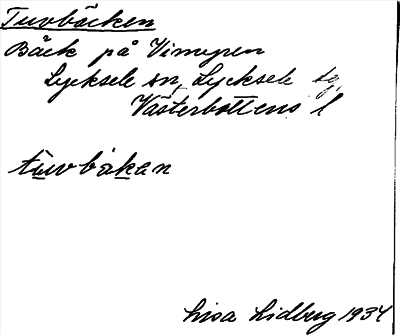 Tuvbäcken
Bäck på Vimyren
Lycksele sn, Lycksele tg,
Västerbottens l
tu̲vbäk̲an
Lisa Lidberg 1934